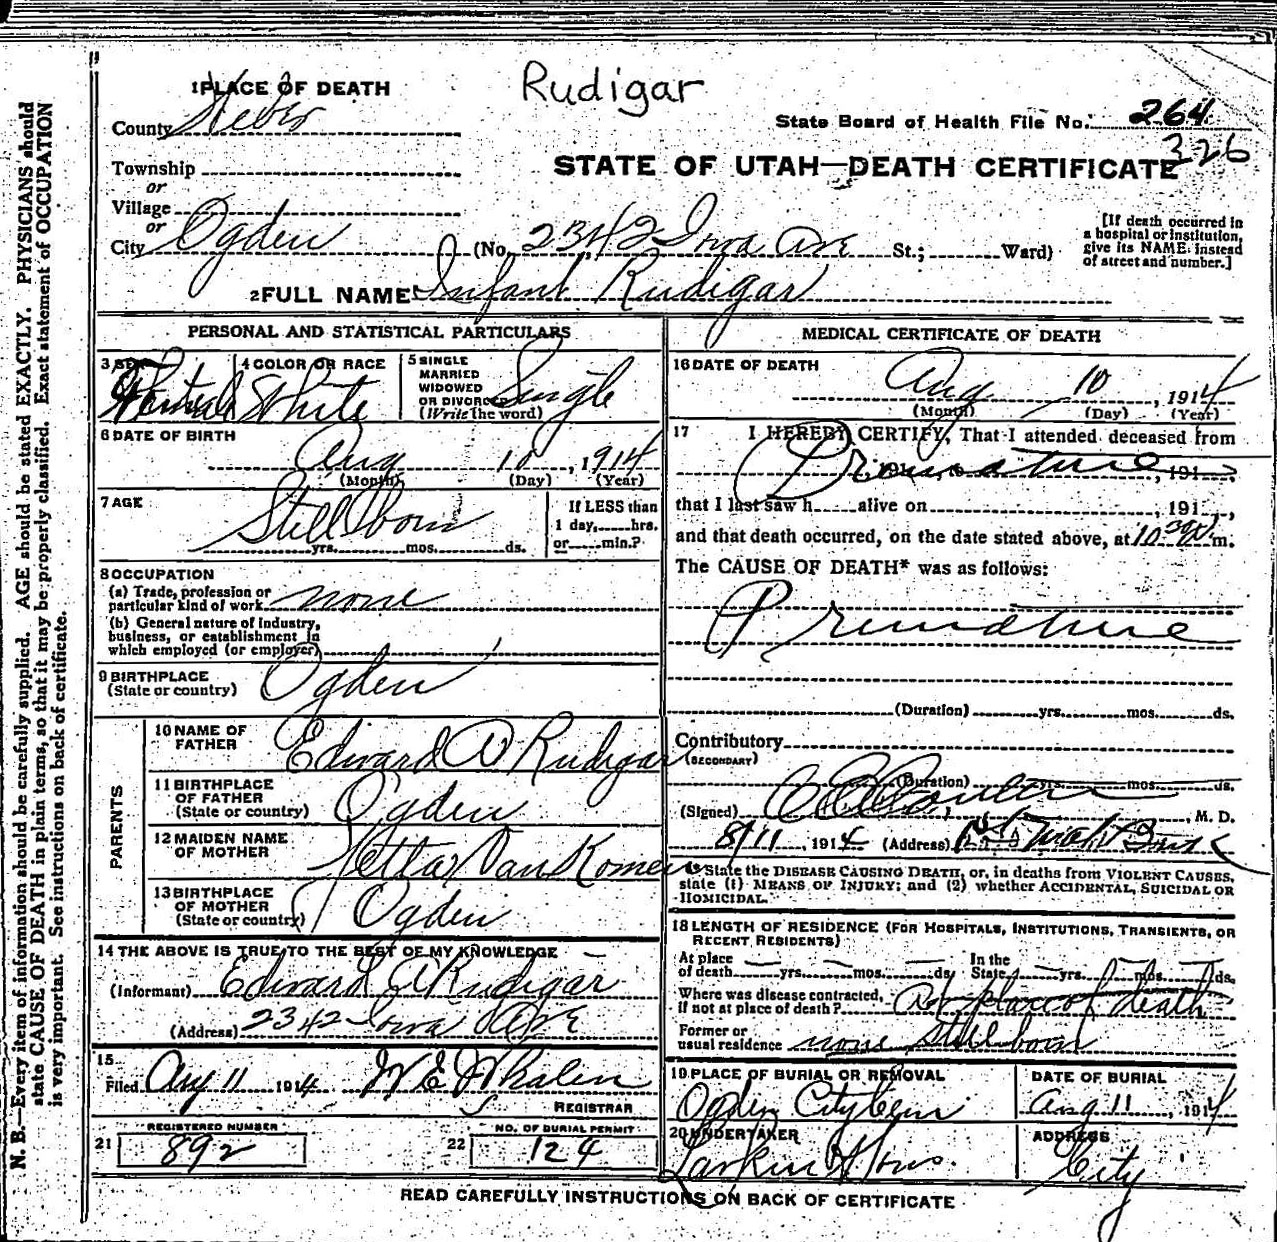 Rudigar
1 PLACE OF DEATH
County Weber
State Board of Health File No. 264
326
STATE OF UTAH—DEATH CERTIFICATE
Township
or
Village
or
City Ogden (No. 2342 Iowa Ave St.; Ward)
[If death occurred in
a hospital or institution,
give its NAME instead
of street and number.]
2 FULL NAME Infant Rudigar
PERSONAL AND STATISTICAL PARTICULARS
3 SEX Female
4 COLOR OR RACE White
5 SINGLE
MARRIED
WIDOWED
OR DIVORCED
(Write the word) Single
6 DATE OF BIRTH
Aug 10, 1914
(Month) (Day) (Year)
7 AGE Stillborn
yrs. mos. ds.
If LESS than
1 day, hrs.
or min.?
8 OCCUPATION
(a) Trade, profession or
particular kind of work none
(b) General nature of industry,
business, or establishment in
which employed (or employer)
9 BIRTHPLACE
(State or country) Ogden
PARENTS
10 NAME OF
FATHER Edward A Rudigar
11 BIRTHPLACE
OF FATHER
(State or country) Ogden
12 MAIDEN NAME
OF MOTHER
13 BIRTHPLACE
OF MOTHER
(State or country) Ogden
14 THE ABOVE IS TRUE TO THE BEST OF MY KNOWLEDGE
(Informant) Edward A Rudigar
(Address) 2342 Iowa Ave
15
Filed Aug 11 1914 W E Whalen
REGISTRAR
21 REGISTERED NUMBER
892
22 NO. OF BURIAL PERMIT
124
MEDICAL CERTIFICATE OF DEATH
16 DATE OF DEATH
Aug 10, 1914
(Month) (Day) (Year)
17 I HEREBY CERTIFY, That I attended deceased from
Premature, 191
that I last saw h alive on , 191 ,
and that death occurred, on the date stated above, at 10 30 m.
The CAUSE OF DEATH* was as follows:
Premature
(Duration) yrs. mos. ds.
Contributory
(SECONDARY)
(Duration) yrs. mos. ds.
(Signed) , M. D.
8/11, 1914 (Address)
* State the DISEASE CAUSING DEATH, or, in deaths from VIOLENT CAUSES,
state (1) MEANS OF INJURY; and (2) whether ACCIDENTAL, SUICIDAL OR
HOMICIDAL.
18 LENGTH OF RESIDENCE (FOR HOSPITALS, INSTITUTIONS, TRANSIENTS, OR
RECENT RESIDENTS)
At place In the
of death yrs. mos. ds. State yrs. mos. ds.
Where was disease contracted,
if not at place of death? At place of death
Former or
usual residence none Stillborn
19 PLACE OF BURIAL OR REMOVAL
Ogden City Cem
DATE OF BURIAL
Aug 11, 1914
20 UNDERTAKER
Larkin & Sons.
ADDRESS
City
READ CAREFULLY INSTRUCTIONS ON BACK OF CERTIFICATE
N. B.—Every item of information should be carefully supplied. AGE should be stated EXACTLY. PHYSICIANS should
state CAUSE OF DEATH in plain terms, so that it may be properly classified. Exact statement of OCCUPATION
is very important. See instructions on back of certificate.